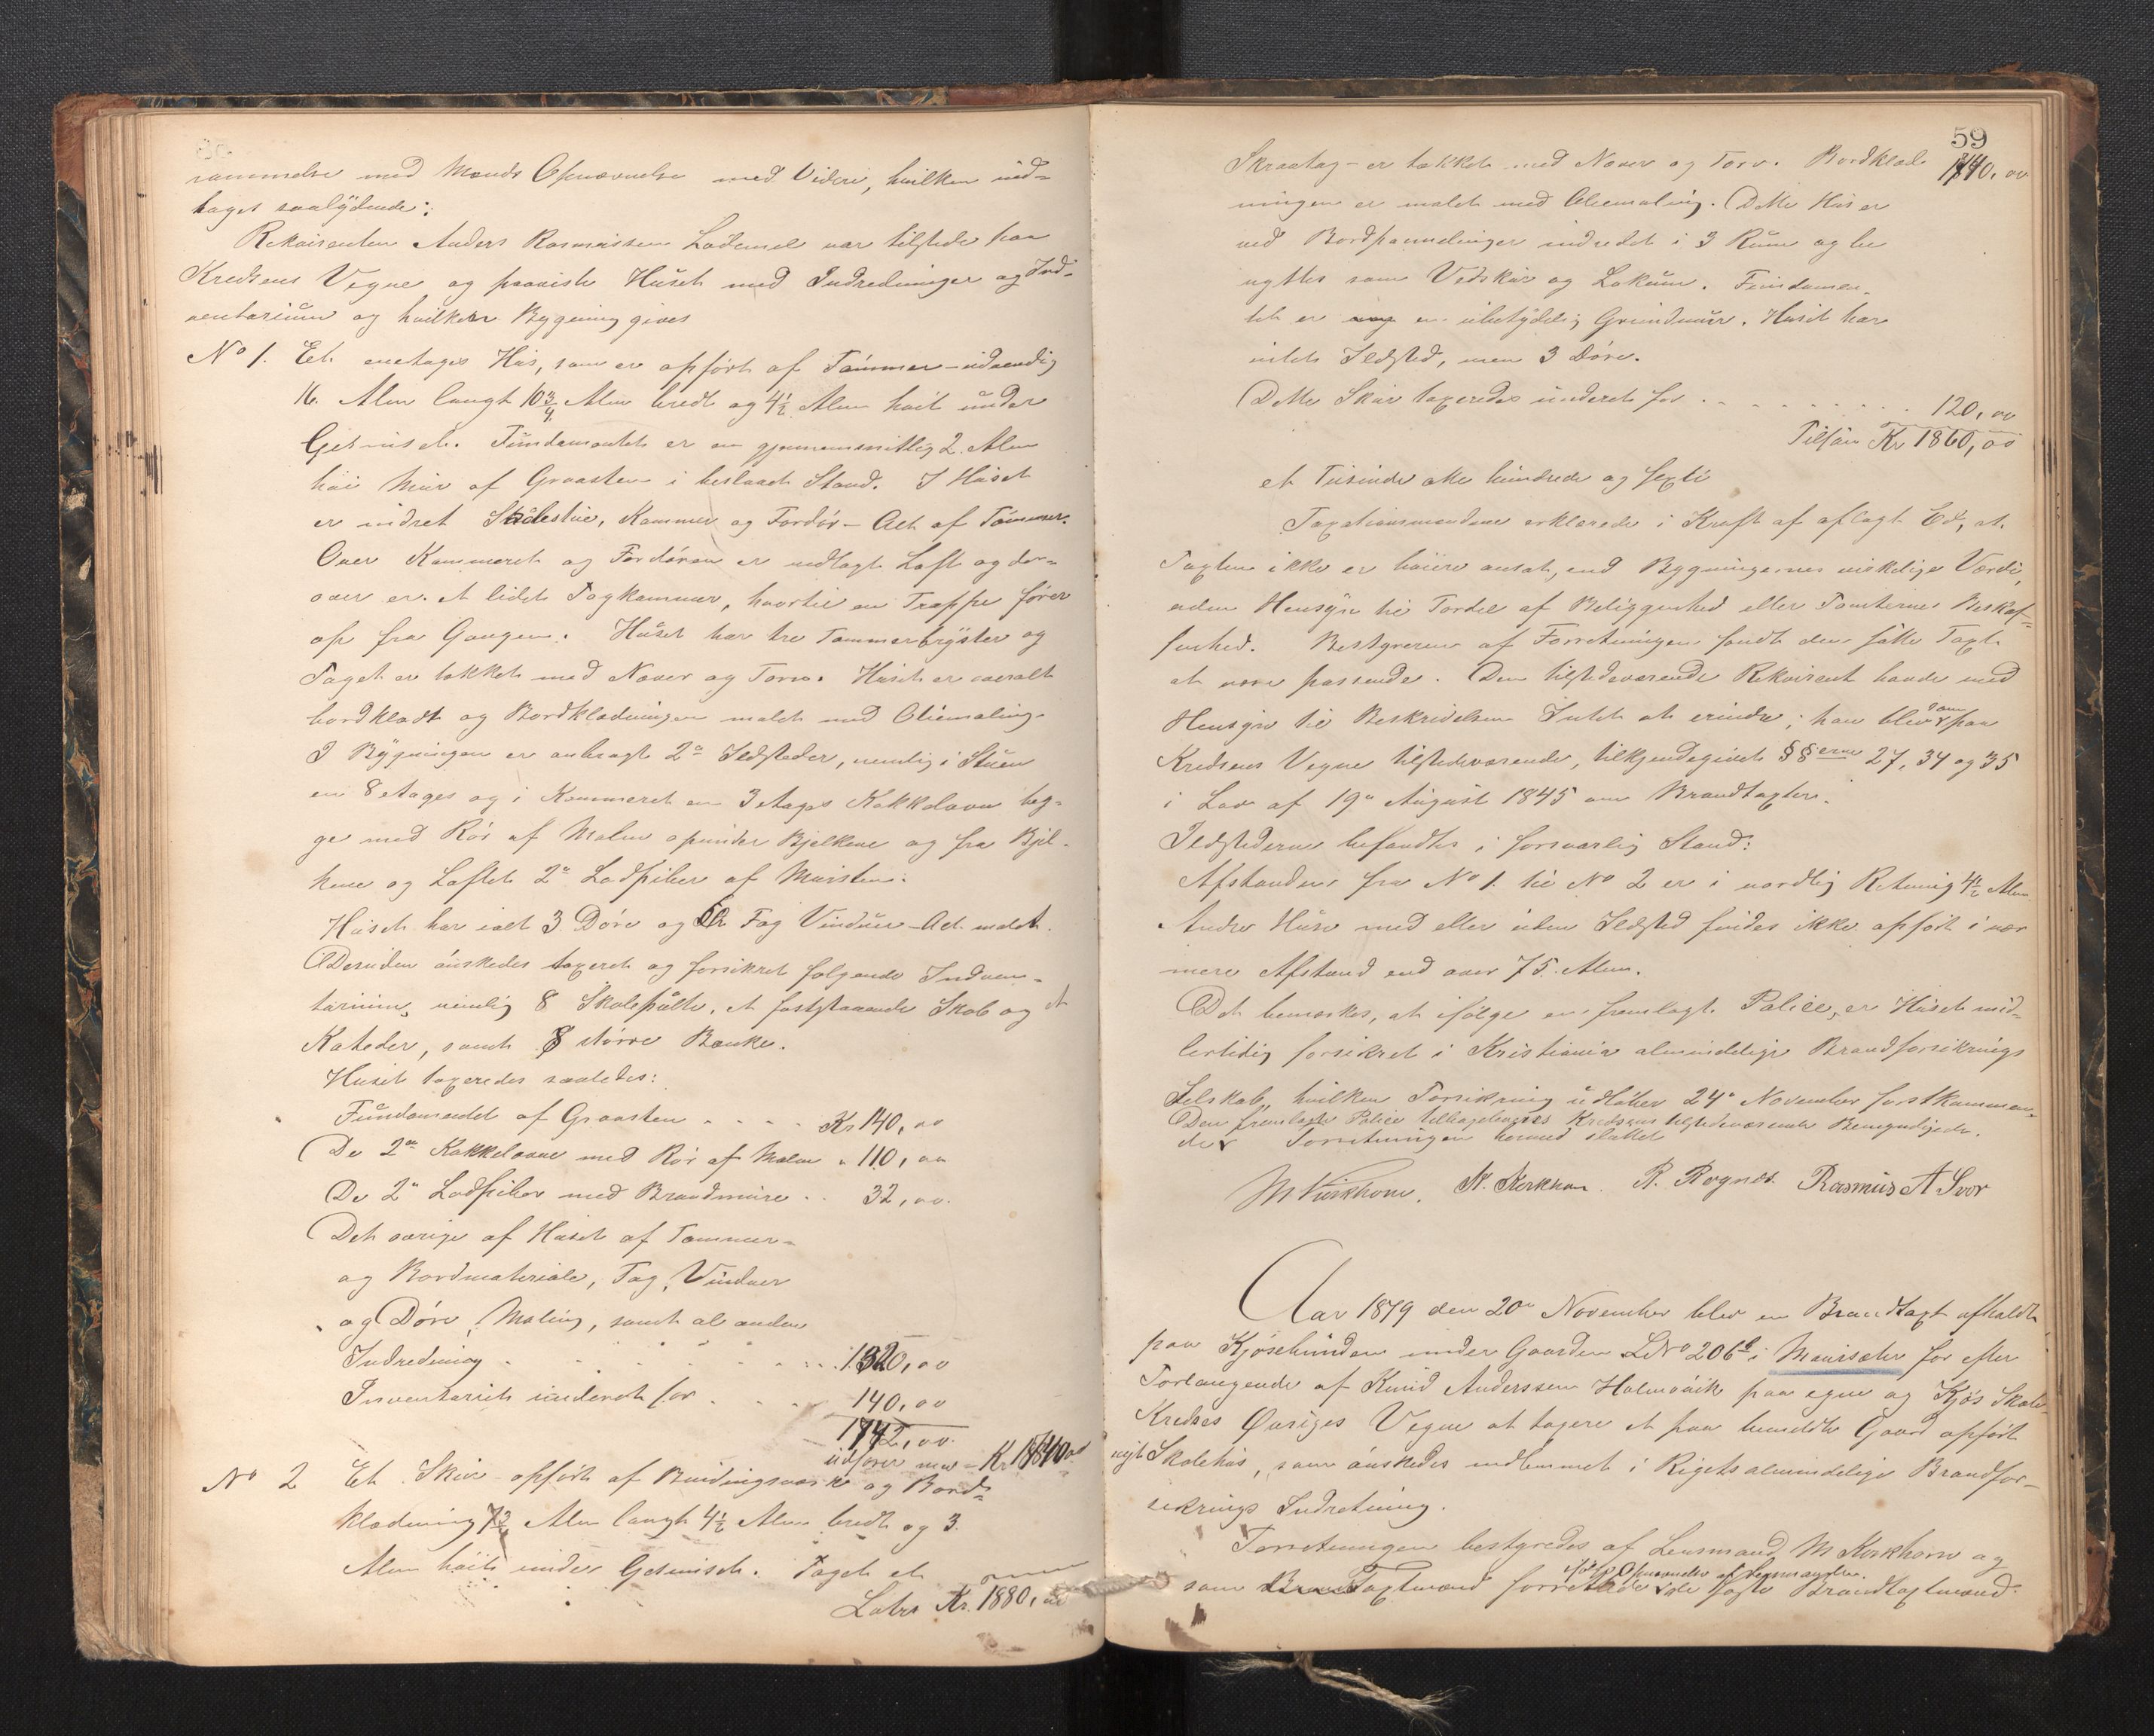 rammelse med Mands Opnævnelse med Videre, hvilken ind-
taget saalydende:
Rekvirenten Anders Rasmussen Lødemel var tilstede paa
Kredsens Vegne og paaviste Huset med Indredninger og Ind-
ventarium og hvilken Bygning gives
No 1. Et enetages Hus, som er opført af Tømmer - udvendig
16. Alen langt 10 3/4 Alen bredt og 4 1/2 Alen høit under
Gesimset. Fundamentet er en gjennemsnitlig 2 Alen
høi Mur af Graasten i beslaaet Stand. I Huset
er indret Skolestue, Kammer og Fordør - Alt af Tømmer.
Over Kammeret og Fordøren er nedlagt Loft og der-
over er et lidet Tagkammer, hvortil en Trappe fører
op fra Gangen. Huset har tre Tømmerbryster og
Taget er tækket med Næver og Torv. Huset er overalt
bordklædt og Bordklædningen malet med Oliemaling.
I Bygningen er anbragt 2de Ildsteder, nemlig i Stuen
en 8 etages og i Kammeret en 3 etages Kakkelovn beg-
ge med Rør af Malm opunder Bjelkene og fra Bjel-
kene og Loftet 2de Ladpiber af Mursten.
Huset har ialt 3 Døre og Fag Vinduer - Alt malet.
Desuden ønskedes taxeret og forsikret følgende Indven-
tarium, nemlig 8 Skolepulte, et faststaaende Skab og et
Kateder, samt 8 større Bænke.
Huset taxeredes saaledes:
Fundamentet af Graasten . . . . Kr 140,00
De 2de Kakkelovne med Rør af Malm " 110,00
De 2de Ladpiber med Brandmure . . 32,00.
Det øvrige af Huset af Tømmer-
og Bordmateriale, Tag, Vinduer
og Døre, Maling, samt al anden
Indredning . . . . . . . 1320,00
Inventariet vurderet for . . . . 140,00
1742,00.
udføres med - Kr 1740,00
No 2 Et Skur - opført af Bindingsværk og Bord-
klædning 7 1/2 Alen langt 4 1/2 Alen bredt og 3
Alen høit under Gesimset. Taget et
Latus Kr. 1880,00
59
Skraatag - er tækket med Næver og Torv. Bordklæd- 1740,00
ningen er malet med Oliemaling. Dette Hus er
ved Bordpanelinger indredet i 3 Rum og be
nyttes som Vedskur og Lokum. Fundamen-
tet er en ubetydelig Grundmur. Huset har
intet Ildsted, men 3 Døre.
Dette Skur taxeredes vurderet for . . . . . . . . 120,00
Tilsam Kr 1860,00
et Tusinde otte hundrede og sexti
Taxationsmændene erklærede i Kraft af aflagt Ed, at
Taxten ikke er høiere ansat, end Bygningernes virkelige Værdi,
uden Hensyn til Fordel af Beliggenhed eller Tomternes Beskaf-
fenhed. Bestyreren af Forretningen fandt den satte Taxt
at være passende. Den tilstedeværende Rekvirent havde med
Hensyn til Beskrivelsen Intet at erindre; han blev som paa
Kredsens Vegne tilstedeværende, tilkjendegivet §§erne 27, 34 og 35
i Lov af 19de August 1845 om Brandtaxter.
Ildstederne befandtes i forsvarlig Stand:
Afstanden fra No 1. til No 2 er i nordlig Retning 4 1/2 Alen
Andre Huse med eller uden Ildsted findes ikke opført i nær
mere Afstand end over 75 Alen.
Det bemærkes, at ifølge en fremlagt Police, er Huset mid-
lertidig forsikret i Kristiania almindelige Brandforsikrings
Selskab, hvilken Forsikring udløber 24de November førstkommen-
Den fremlagte Police tilbageleveres Kredsens tilstedeværende Bemyndigede.
de. Forretningen hermed sluttet
M Kirkhorn. N. Kirkhorn. R. Rognes. Rasmus A Svor
Aar 1879 den 20de November blev en Brandtaxt afholdt
paa Kjøsebunden under Gaarden LNo 206b i Maurisæter for efter
Forlangende af Knud Anderssen Holmøvik paa egne og Kjøs Skole-
Kredses Øvriges Vegne at taxere et paa bemeldte Gaard opført
nyt Skolehus, som ønskedes indlemmet i Rigets almindelige Brandfor-
sikrings Indretning.
Forretningen bestyredes af Lensmand M Kirkhorn og
ifølge Opnævnelse af Lensmanden.
som Taxtmænd forrettede de faste Brandtaxtmænd